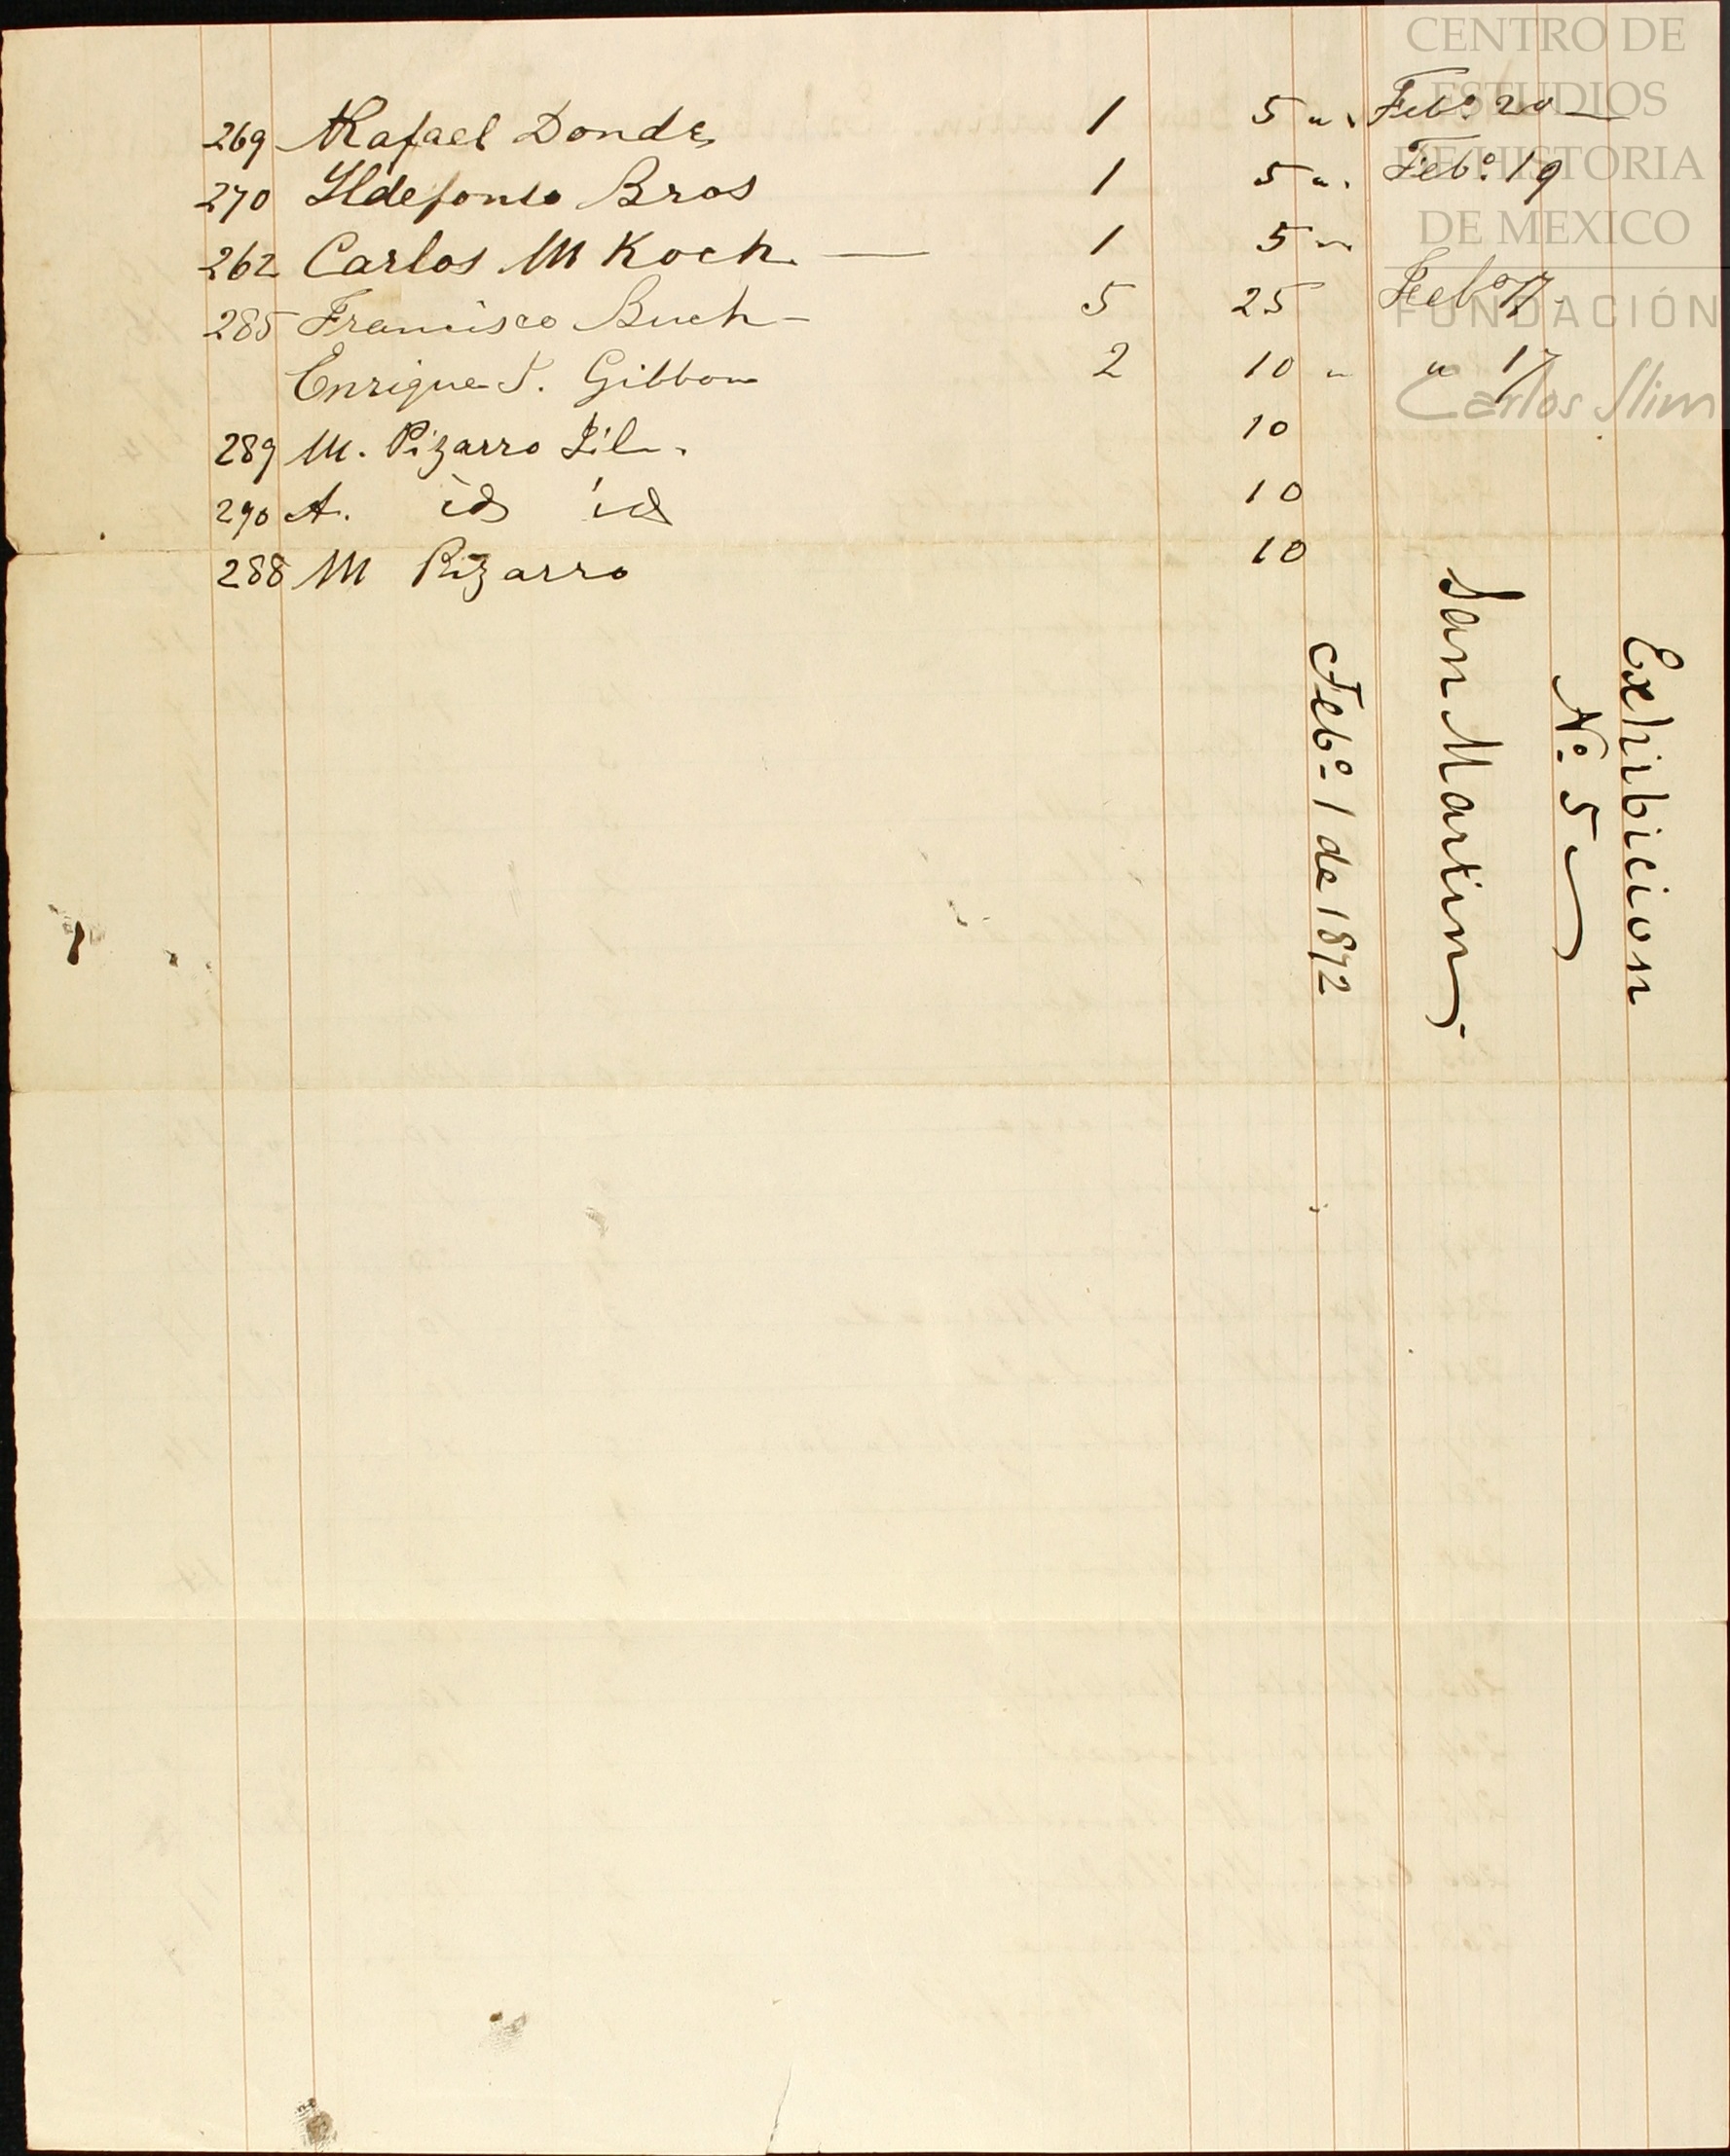 269 Rafael Donde 1 5 " Febº. 20
270 Ildefonso Bros 1 5 " Febº. 19
262 Carlos M Koch. — 1 5 "
285 Francisco Buch – 5 25 Febº 17
Enrique J. Gibbon 2 10 " " 17
289 M. Pizarro 10
290 A. id id 10
288 M Pizarro 10
Exhibicion
Nº. 5
San Martin.
Febº. 1 de 1872
CENTRO DE
ESTUDIOS
DE HISTORIA
DE MEXICO
FUNDACIÓN
Carlos Slim